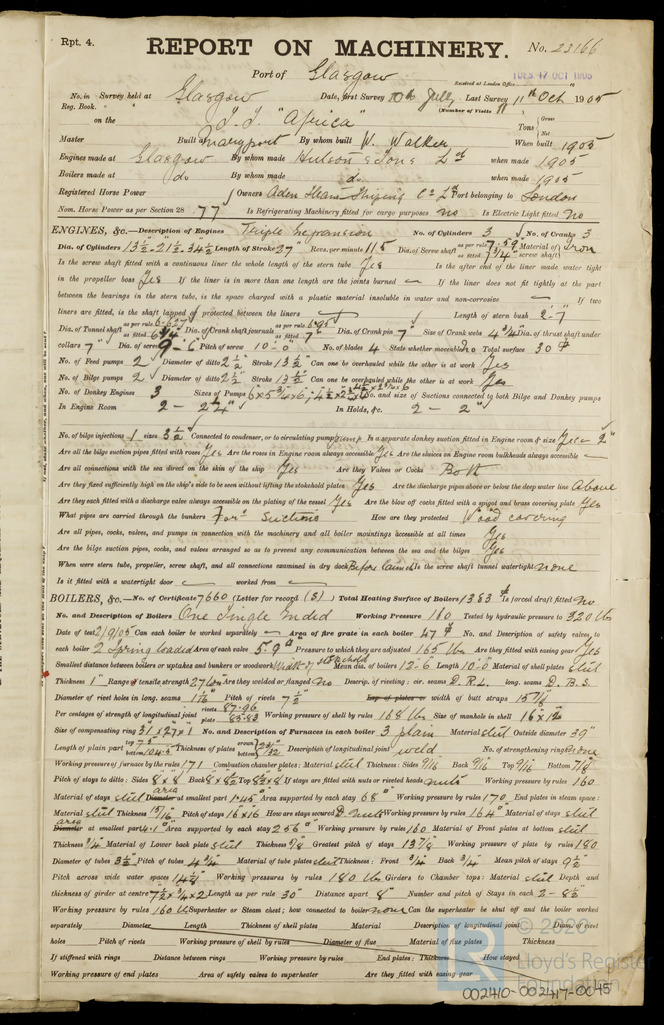 Rpt. 4.
REPORT ON MACHINERY.
No. 23166
Port of Glasgow
Received at London Office TUES. 17 OCT 1905
No. in Survey held at Glasgow Date, first Survey 10th July Last Survey 11th Oct 1905
Reg. Book. (Number of Visits
on the S.S. "Africa" Tons { Gross Net
Master Built at Maryport By whom built W. Walker When built 1905
Engines made at Glasgow By whom made Hutson & Sons Ld when made 1905
Boilers made at do. By whom made do. when made 1905
Registered Horse Power Owners Aden Steam Shipping Co Ld Port belonging to London
Nom. Horse Power as per Section 28 77 Is Refrigerating Machinery fitted for cargo purposes no Is Electric Light fitted no
ENGINES, &c.—Description of Engines Triple Expansion No. of Cylinders 3 No. of Cranks 3
Dia. of Cylinders 13½-21½-34½ Length of Stroke 27" Revs. per minute 115 Dia. of Screw shaft as per rule 7.39 as fitted 7¾" Material of screw shaft) iron
Is the screw shaft fitted with a continuous liner the whole length of the stern tube Yes Is the after end of the liner made water tight
in the propeller boss Yes If the liner is in more than one length are the joints burned — If the liner does not fit tightly at the part
between the bearings in the stern tube, is the space charged with a plastic material insoluble in water and non-corrosive — If two
liners are fitted, is the shaft lapped or protected between the liners — Length of stern bush 2-7"
Dia. of Tunnel shaft as per rule 6.627 as fitted 6¾" Dia. of Crank shaft journals as per rule 6.95 as fitted 7" Dia. of Crank pin 7" Size of Crank webs 4¾" Dia. of thrust shaft under
collars 7" Dia. of screw 9-6" Pitch of screw 10-0" No. of blades 4 State whether moveable no Total surface 30
No. of Feed pumps 2 Diameter of ditto 2½" Stroke 13½" Can one be overhauled while the other is at work Yes
No. of Bilge pumps 2 Diameter of ditto 2½" Stroke 13½" Can one be overhauled while the other is at work Yes
No. of Donkey Engines 3 Sizes of Pumps No. and size of Suctions connected to both Bilge and Donkey pumps
In Engine Room 2 - 2¼" In Holds, &c. 2 - 2"
No. of bilge injections 1 sizes 3½ Connected to condenser, or to circulating pump pump Is a separate donkey suction fitted in Engine room & size Yes - 2"
Are all the bilge suction pipes fitted with roses Yes Are the roses in Engine room always accessible Yes Are the sluices on Engine room bulkheads always accessible —
Are all connections with the sea direct on the skin of the ship Yes Are they Valves or Cocks Both
Are they fixed sufficiently high on the ship's side to be seen without lifting the stokehold plates Yes Are the discharge pipes above or below the deep water line above
Are they each fitted with a discharge valve always accessible on the plating of the vessel Yes Are the blow off cocks fitted with a spigot and brass covering plate Yes
What pipes are carried through the bunkers Ford Suctions How are they protected Wood covering
Are all pipes, cocks, valves, and pumps in connection with the machinery and all boiler mountings accessible at all times Yes
Are the bilge suction pipes, cocks, and valves arranged so as to prevent any communication between the sea and the bilges Yes
When were stern tube, propeller, screw shaft, and all connections examined in dry dock Before launch Is the screw shaft tunnel watertight none
Is it fitted with a watertight door — worked from —
BOILERS, &c.— No. of Certificate 7660 (Letter for record (S) Total Heating Surface of Boilers 1383 Is forced draft fitted no
No. and Description of Boilers One Single Ended Working Pressure 160 Tested by hydraulic pressure to 320 lbs
Date of test 2/9/05 Can each boiler be worked separately — Area of fire grate in each boiler 47 No. and Description of safety valves to
each boiler 2 Spring loaded Area of each valve 5.9" Pressure to which they are adjusted 165 lbs Are they fitted with easing gear Yes
Smallest distance between boilers or uptakes and bunkers or woodwork Width of stokehold Mean dia. of boilers 12-6 Length 10-0 Material of shell plates steel
Thickness 1" Range of tensile strength Are they welded or flanged no Descrip. of riveting: cir. seams D.R.L. long. seams D.B.S.
Diameter of rivet holes in long. seams 1 1/16" Pitch of rivets 7½ Lap of plates or width of butt straps 15⅞
Per centages of strength of longitudinal joint rivets 87.96 plate 85.83 Working pressure of shell by rules 168 lbs Size of manhole in shell 16 x 12
Size of compensating ring 31 x 27 x 1 No. and Description of Furnaces in each boiler 3 plain Material steel Outside diameter 39"
Length of plain part top bottom Thickness of plates crown bottom Description of longitudinal joint weld No. of strengthening rings none
Working pressure of furnace by the rules 171 Combustion chamber plates: Material steel Thickness: Sides 9/16 Back 9/16 Top 9/16 Bottom 7/8
Pitch of stays to ditto: Sides 8 x 8 Back 8 x 8½ Top 8 x 8 If stays are fitted with nuts or riveted heads nuts Working pressure by rules 160
Material of stays steel area Diameter at smallest part 1.45 Area supported by each stay 68 Working pressure by rules 170 End plates in steam space:
Material steel Thickness 15/16 Pitch of stays 16 x 16 How are stays secured D. nuts Working pressure by rules 164 Material of stays steel
area Diameter at smallest part 4.1 Area supported by each stay 256 Working pressure by rules 160 Material of Front plates at bottom steel
Thickness ¾ Material of Lower back plate steel Thickness ⅞ Greatest pitch of stays 13⅞ Working pressure of plate by rules 180
Diameter of tubes 3½ Pitch of tubes 4¾ Material of tube plates steel Thickness: Front ¾ Back ¾ Mean pitch of stays 9½
Pitch across wide water spaces 14½ Working pressures by rules 180 lbs Girders to Chamber tops: Material steel Depth and
thickness of girder at centre 7½ x ¾ x 2 Length as per rule 30" Distance apart 8" Number and pitch of Stays in each 2 - 8½
Working pressure by rules 160 lbs Superheater or Steam chest; how connected to boiler none Can the superheater be shut off and the boiler worked
separately Diameter Length Thickness of shell plates Material Description of longitudinal joint Diam. of rivet
holes Pitch of rivets Working pressure of shell by rules Diameter of flue Material of flue plates Thickness
If stiffened with rings Distance between rings Working pressure by rules End plates: Thickness How stayed
Working pressure of end plates Area of safety valves to superheater Are they fitted with easing gear
© 2020
Lloyd's Register
Foundation
002410-002417-0045